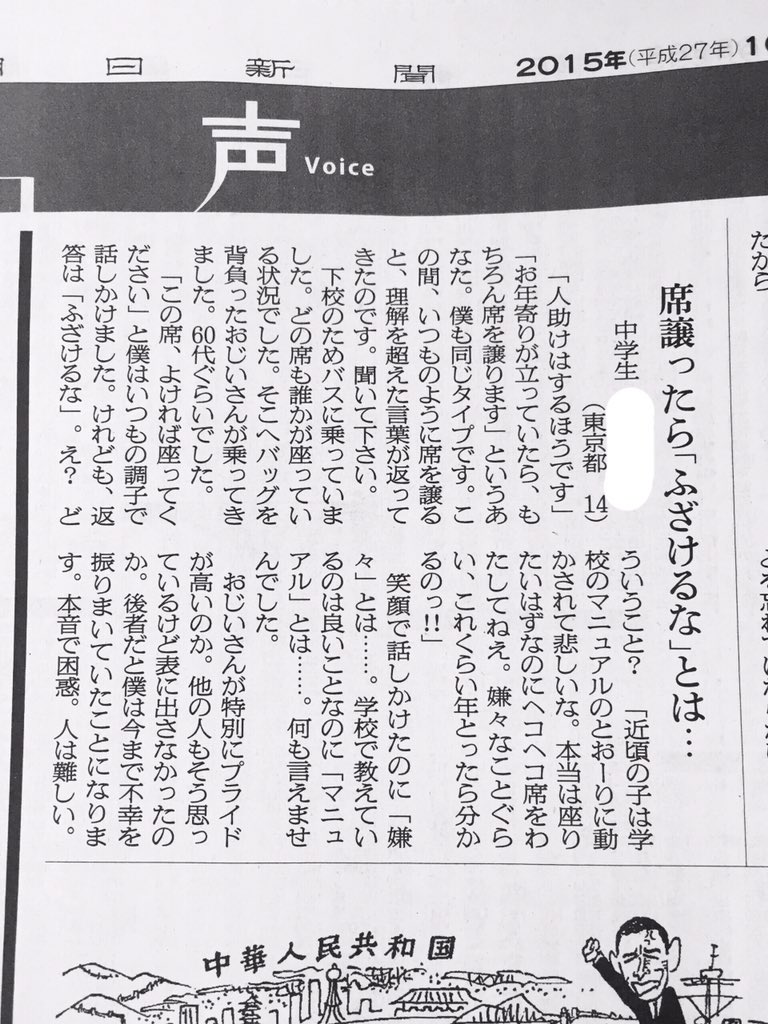 日新聞
2015年(平成27年)1
声 Voice
だから
席譲ったら「ふざけるな」とは…
中学生
(東京都 14)
「人助けはするほうです」
「お年寄りが立っていたら、も
ちろん席を譲ります」というあ
なた。僕も同じタイプです。こ
の間、いつものように席を譲る
と、理解を超えた言葉が返って
きたのです。聞いて下さい。
下校のためバスに乗っていま
した。どの席も誰かが座ってい
る状況でした。そこへバッグを
背負ったおじいさんが乗ってき
ました。60代ぐらいでした。
「この席、よければ座ってく
ださい」と僕はいつもの調子で
話しかけました。けれども、返
答は「ふざけるな」。え? ど
ういうこと? 「近頃の子は学
校のマニュアルのとおーりに動
かされて悲しいな。本当は座り
たいはずなのにヘコヘコ席をわ
たしてねえ。嫌々なことぐら
い、これくらい年とったら分か
るのっ!!」
笑顔で話しかけたのに「嫌
々」とは……。学校で教えてい
るのは良いことなのに「マニュ
アル」とは……。何も言えませ
んでした。
おじいさんが特別にプライド
が高いのか。他の人もそう思っ
ているけど表に出さなかったの
か。後者だと僕は今まで不幸を
振りまいていたことになりま
す。本音で困惑。人は難しい。
中華人民共和国